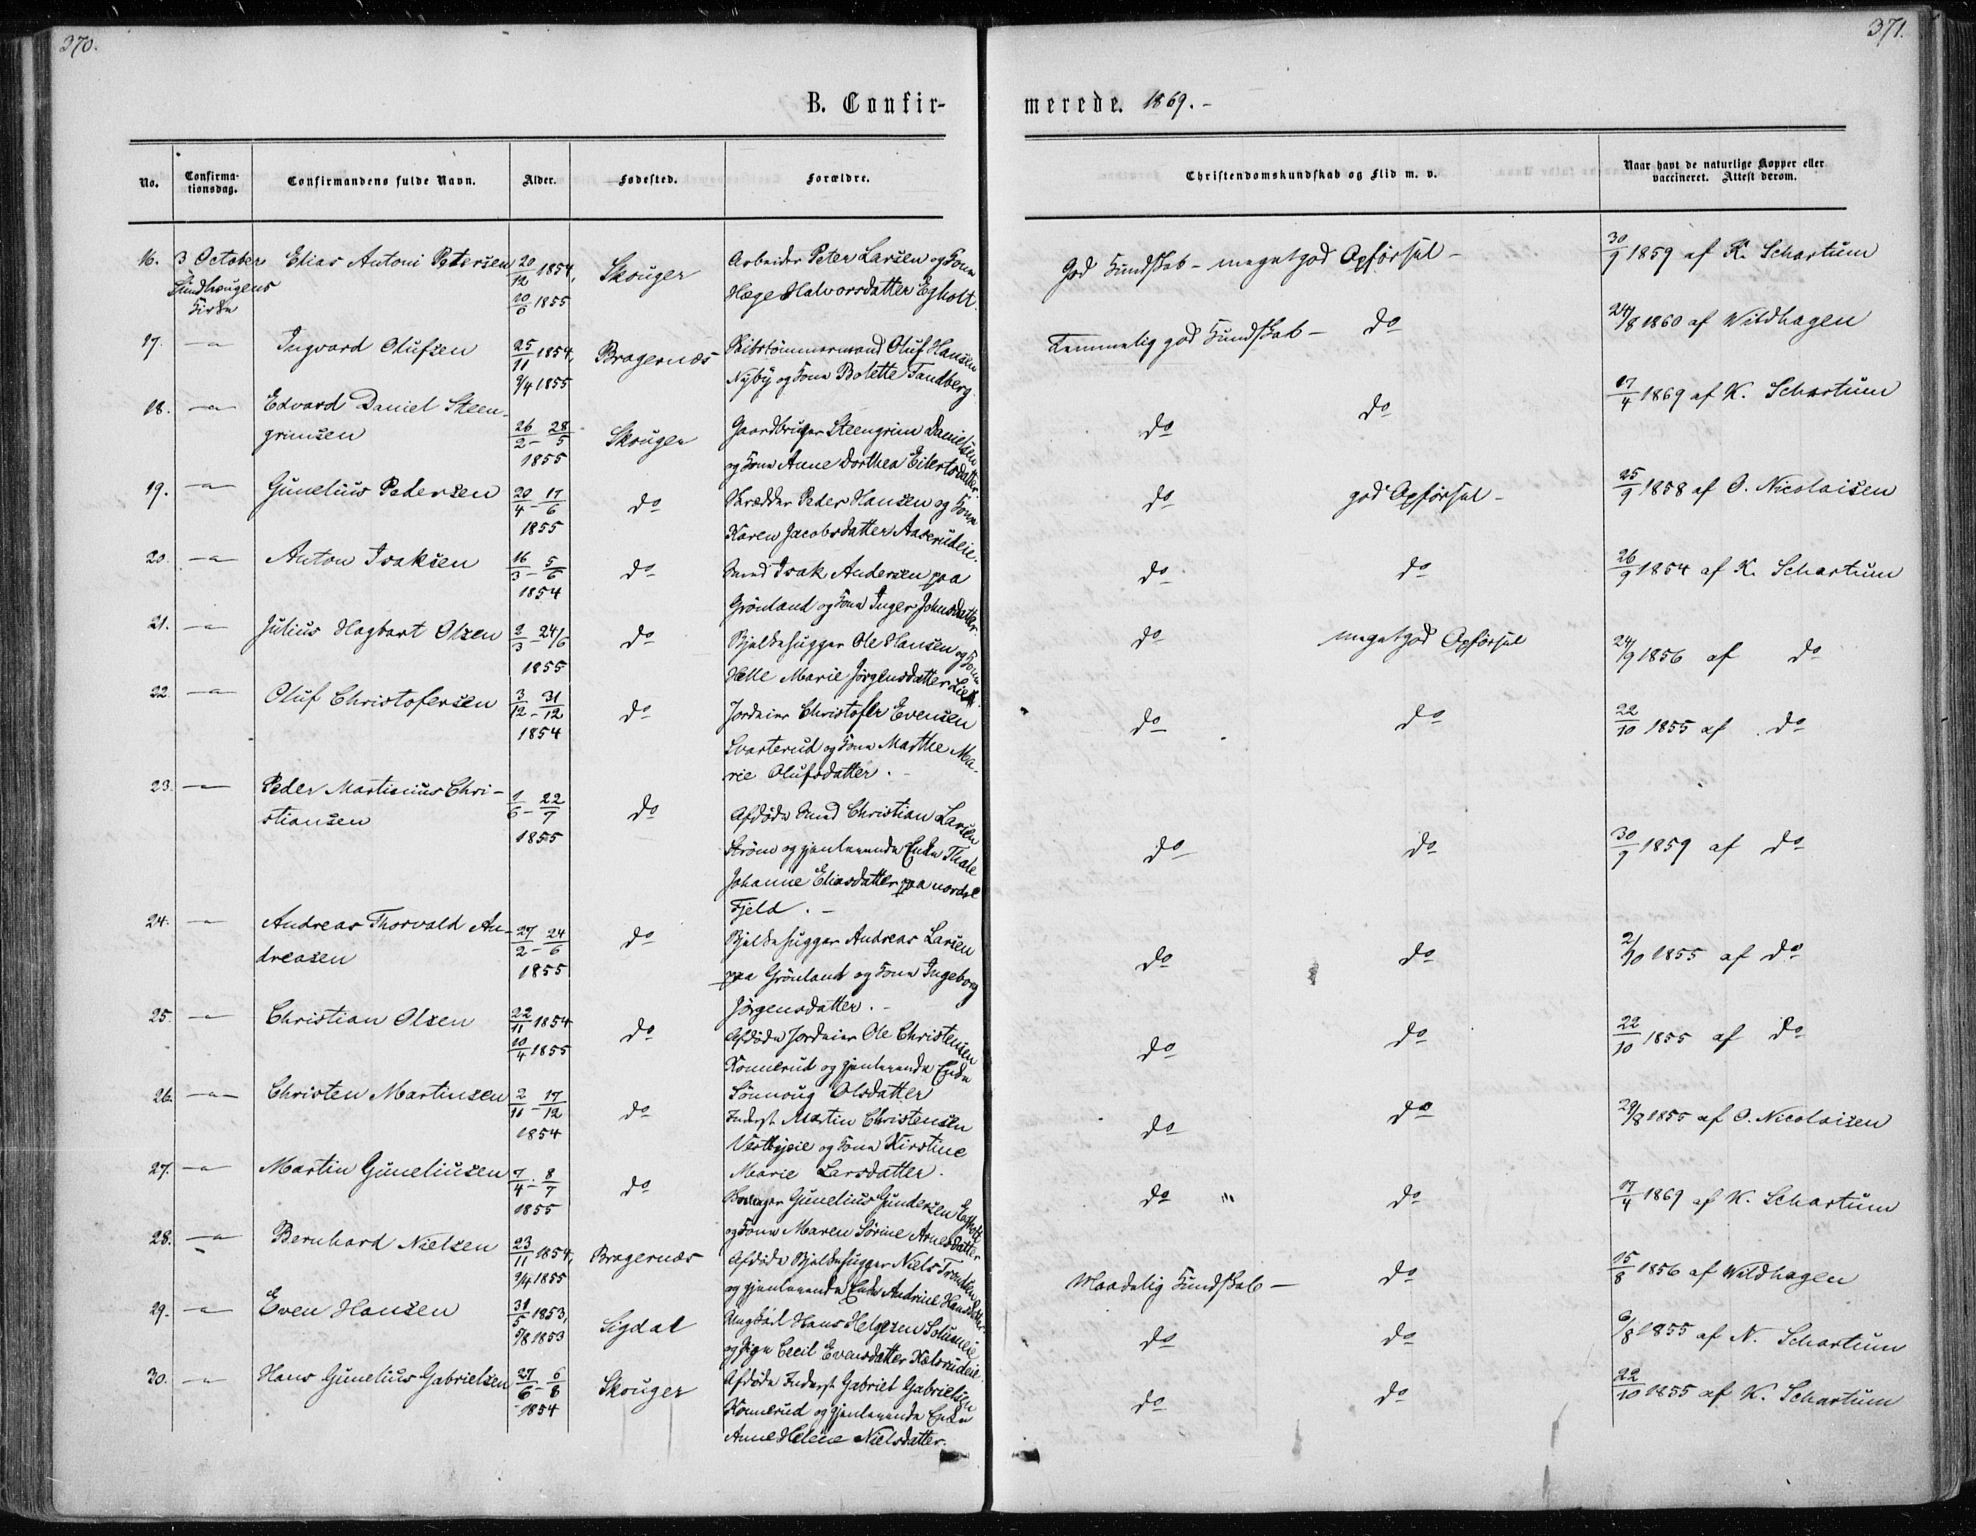 370.
371.
B. Confir-
merede. 1869.-
No.
Confirma-
tionsdag.
Confirmandens fulde Navn.
Alder.
Fødested.
Forældre.
Christendomskundskab og Flid m. v.
Naar havt de naturlige Kopper eller
vaccineret. Attest derom.
16. 3 October Elias Antoni Petersen 20/12 1854, Skouger Arbeider Peter Larsen og Kone God Kundskab - megetgod Opförsel - 30/9 1859 af K. Schartum
Kirke 10/6 1855 Hæge Halvorsdatter Egholt.
17. -"- Ingvard Olufsen 25/11 1854, Bragernæs Skibstömmermand Oluf Hansen Temmelig god Kundskab - do 24/8 1860 af Wildhagen
9/4 1855 Nyby og Kone Bolette Tandberg.
18. -"- Edvard Daniel Steen-
grimsen 26/2 - 28/5 Skouger Gaardbruger Steengrim Danielsen do do 17/4 1869 af K. Schartum
1855 og Kone Anne Dorthea Eilertsdatter.
19. -"- Gunelius Pedersen 20/4 - 17/6 do Skrædder Peder Hansen og Kone do god Opförsel - 25/9 1858 af O. Nicolaisen
1855 Karen Jacobsdatter Aaserudeie.
20. -"- Anton Isaksen 16/3 - 5/6 do Smed Isak Andersen paa do do 26/9 1854 af K. Schartum
1854 Grönland og Kone Inger Johnsdatter.
21. -"- Julius Hagbart Olsen 2/3 - 24/6 do Bjelkehugger Ole Hansen og Kone do megetgod Opförsel 24/9 1856 af do
1855 Helle Marie Jörgensdatter
22. -"- Oluf Christofersen 3/12 - 31/12 do Jordeier Christofer Evensen do do 22/10 1855 af do
1854 Svarterud og Kone Marthe Ma-
rie Olufsdatter. -
23. -"- Peder Martinius Chri-
stiansen 1/6 - 22/7 do Afdöde Smed Christian Larsen do do 30/9 1859 af do
1855 Ström og gjenlevende Enke Thale
Johanne Eliasdatter paa nordre
Fjeld. -
24. -"- Andreas Thorvald An-
dreasen 27/2 - 24/6 do Bjelkehugger Andreas Larsen do do 2/10 1855 af do
1855 paa Grönland og Kone Ingeborg
Jörgensdatter. -
25. -"- Christian Olsen 22/11 1854 do Afdöde Jordeier Ole Christensen do do 22/10 1855 af do
10/4 1855 Konnerud og gjenlevende Enke
Sönnoug Olsdatter
26. -"- Christen Martinsen 2/11 - 17/12 do Inderst Martin Christensen do do 29/8 1855 af O. Nicolaisen
1854 og Kone Kirstine
Marie Larsdatter.
27. -"- Martin Guneliusen 7/4 - 8/7 do Gunelius Gundersen Egholt do do 17/4 1869 af K. Schartum
1855 og Kone Maren Sörine Arnesdatter
28. -"- Bernhard Nielsen 23/11 1854, Bragernæs Afdöde Bjelkehugger Niels Maadelig Kundskab - do 15/8 1856 af Wildhagen
9/4 1855 og gjenlevende Enke Andrine Hansdatter.
29. -"- Even Hansen 31/5 1853, Sigdal Ungkarl Hans Helgesen do do 6/8 1855 af N. Schartum
5/8 1853 og Pige Cecil Evensdatter
30. -"- Hans Gunelius Gabrielsen 27/6 - 6/8 Skouger Afdöde Inderst Gabriel Gabrielsen do do 22/10 1855 af K. Schartum
1854 Konnerud og gjenlevende Enke
Anne Helene Nielsdatter.